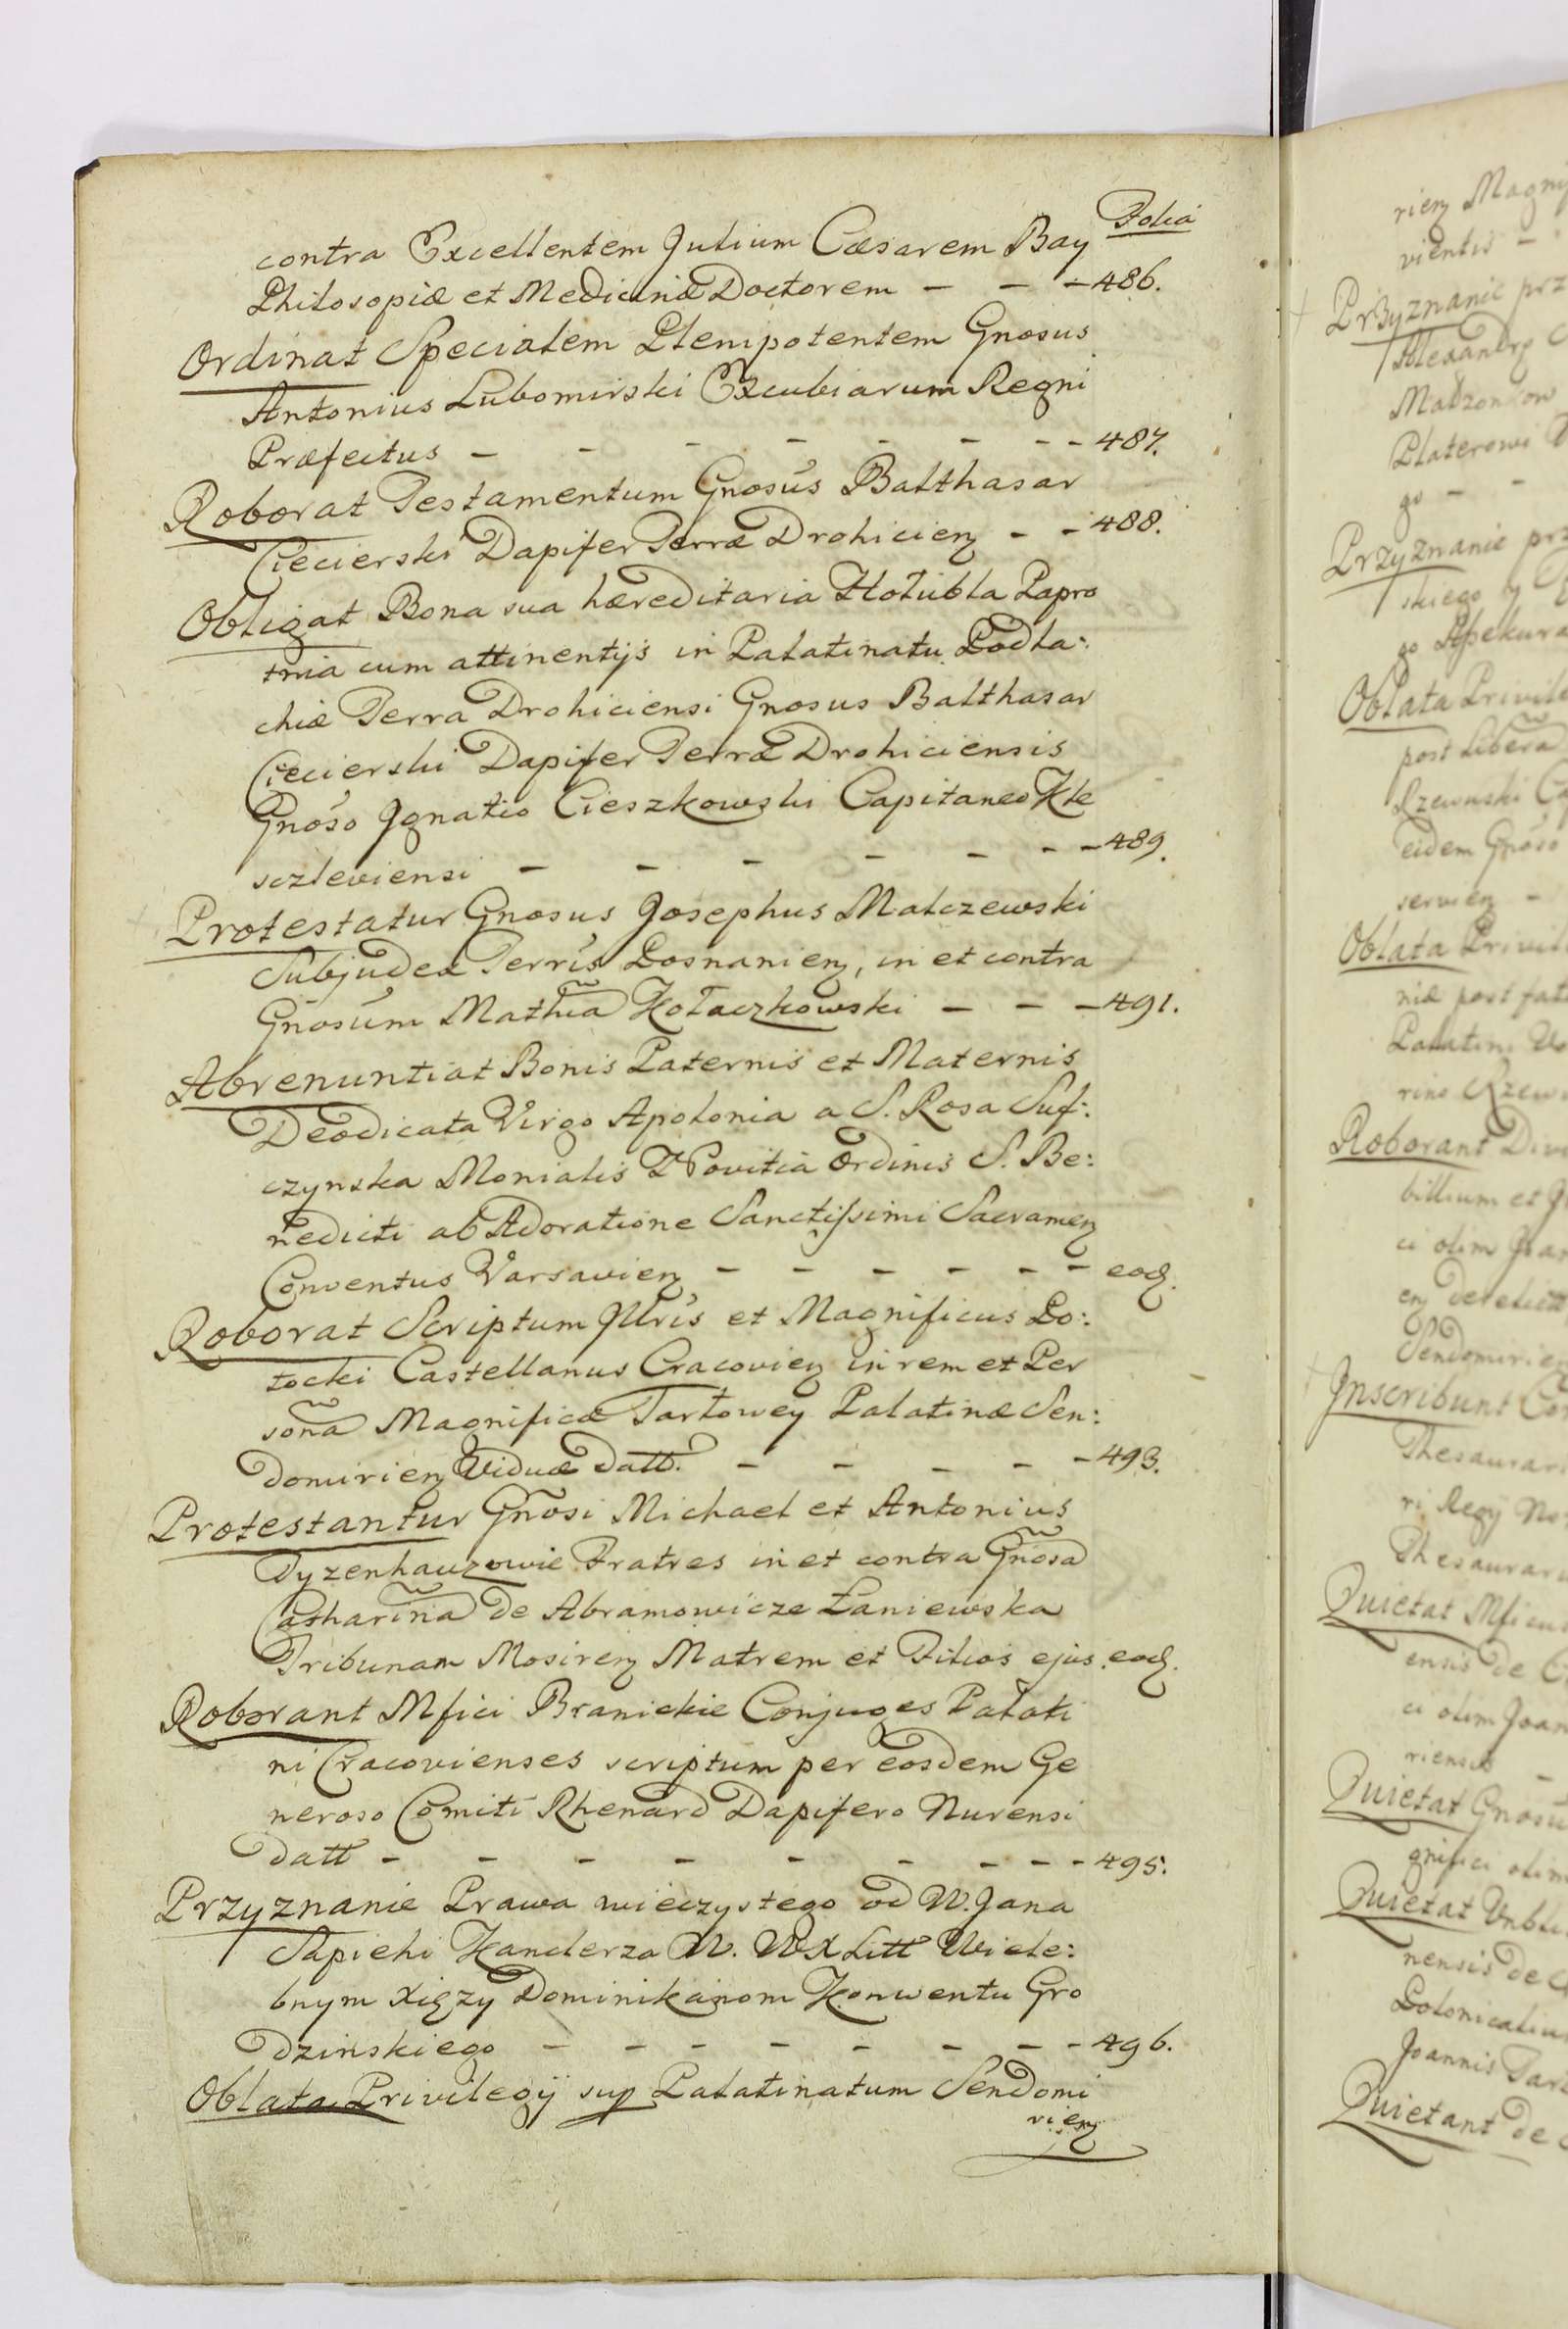 Folia
contra Excellentem Julium Cæsarem Bay
Philosopiæ et Medicinæ Doctorem - - - 486.
Ordinat Specialem Plenipotentem Gnosus
Antonius Lubomirski Excubiarum Regni
Præfectus - - - - - - - - 487.
Roborat Testamentum Gnosus Balthasar
Ciecierski Dapifer Terræ Drohicien - - 488.
Obligat Bona sua hæreditaria Hołubla Papro
tnia cum attinentijs in Palatinatu Podla:
chiæ Terra Drohiciensi Gnosus Balthasar
Ciecierski Dapifer Terræ Drohiciensis
Gnoso Jgnatio Cieszkowski Capitaneo Kle
sczleviensi - - - - - - - 489.
Protestatur Gnosus Josephus Malczewski
Subjudex Terris Posnanien, in et contra
Gnosum Mathia Kołaczkowski - - - 491.
Abrenuntiat Bonis Paternis et Maternis
Deodicata Virgo Apolonia a S. Rosa Suf:
czynska Monialis Novitia Ordinis S. Be:
nedicti ab Adoratione Sanctissimi Sacramen
Conventus Varsavien - - - - - - eod.
Roborat Scriptum Jllris et Magnificus Po:
tocki Castellanus Cracovien in rem et Per
sona Magnificæ Tartowey Palatinæ Sen:
domirien Viduæ datt. - - - - - 493.
Protestantur Gnosi Michael et Antonius
Tyzenhauzowie Fratres in et contra Gnosa
Catharina de Abramowicze Łaniewska
Tribunam Mosiren Matrem et Filios ejus. eod.
Roborant Mfici Branickie Conjuges Palati
ni Cracovienses scriptum per eosdem Ge
neroso Comiti Rhenard Dapifero Nurensi
datt - - - - - - - - - 495.
Przyznanie Prawa wieczystego od W. Jana
Sapiehi Kanclerza W. WX Litt Wiele:
bnym Xięzy Dominikanom Konwentu Gro
dzinskiego - - - - - - - - 496.
Oblata Privilegij sup Palatinatum Sendomi
rien
rien
vientis -
Przyznanie prz
Alexandro
Małzonkow
Platerowi
go - -
Przyznanie prz
skiego y
go
Oblata Privile
post libera
Rzewuski Ca
eidem Gnoso
servien -
Oblata Privil
niæ post fat
Palatini
rino Rzew
Roborant
billium et
ci olim Joan
Sendomirien
Jnscribunt Con
Thesaurari
ri Regij No
Thesaurar
Quietat Mficu
ensis de
ci olim Joan
riensis -
Quietat Gnosu
gnifici olim
Quietat
nensis de
Polonicaliu
Joannis Tar
Quietant de